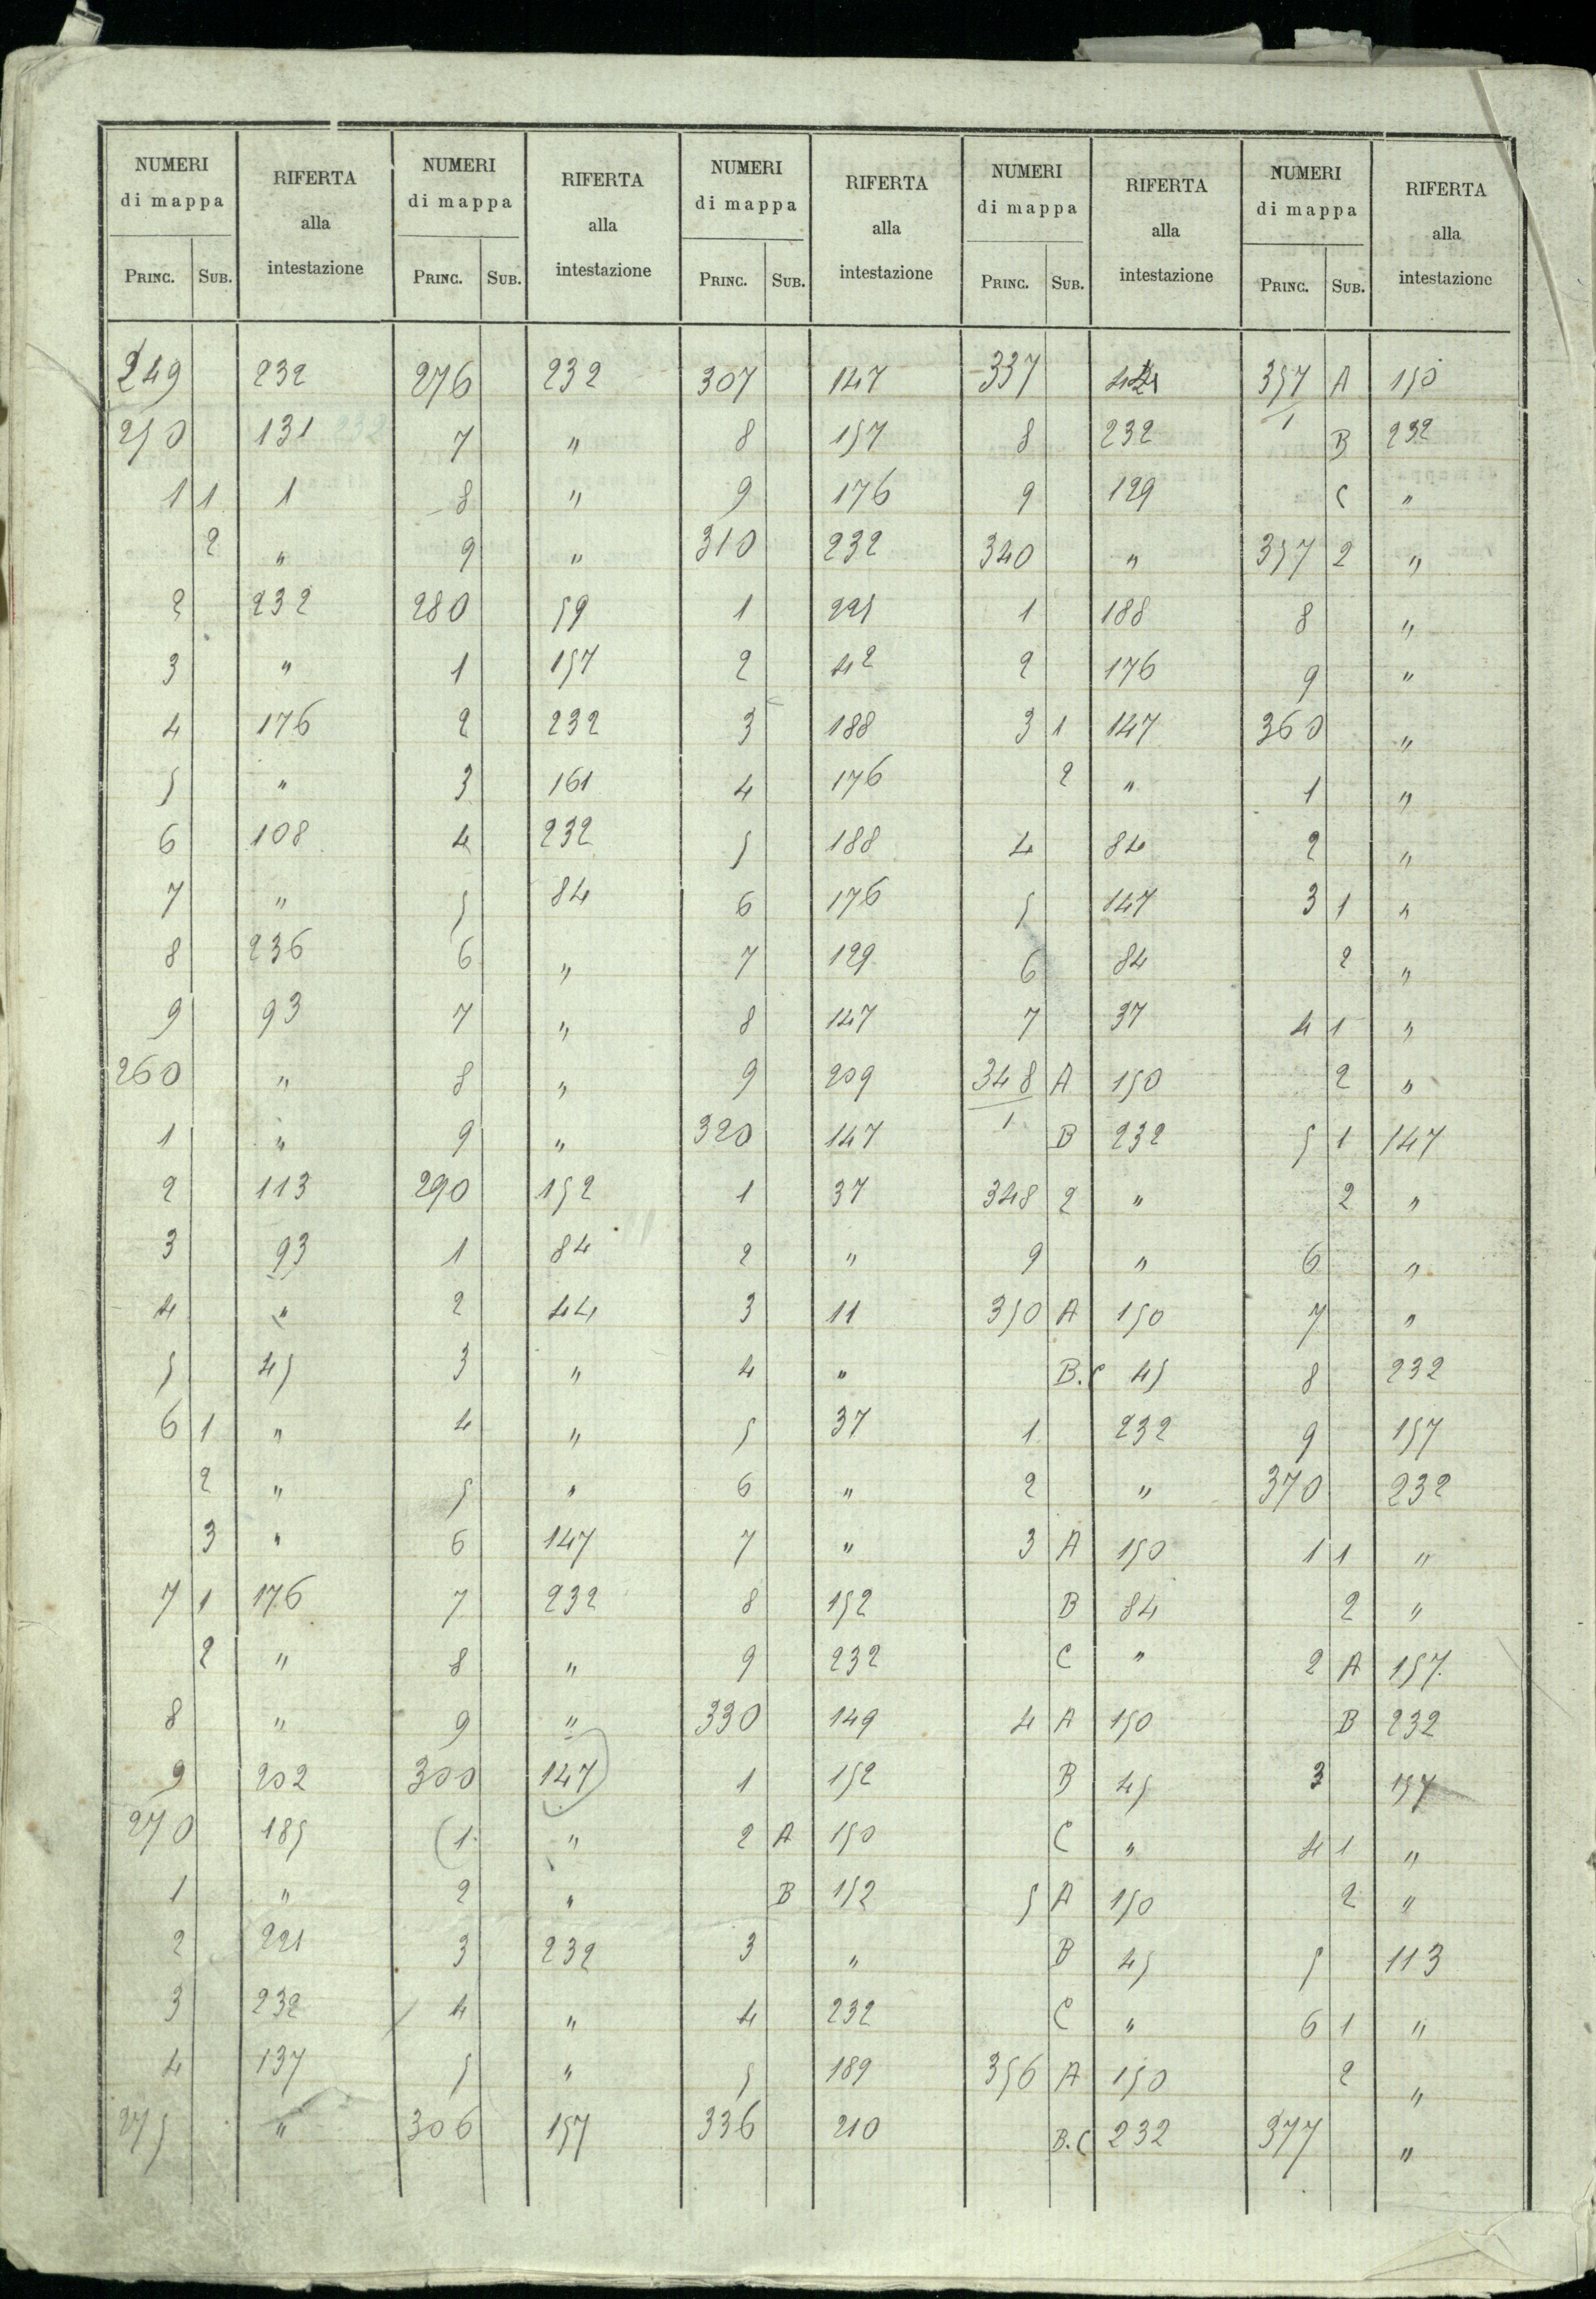 NUMERI di mappa | RIFERTA alla intestazione | NUMERI di mappa | RIFERTA alla intestazione | NUMERI di mappa | RIFERTA alla intestazione | NUMERI di mappa | RIFERTA alla intestazione | NUMERI di mappa | RIFERTA alla intestazione
PRINC. | SUB. | | PRINC. | SUB. | | PRINC. | SUB. | | PRINC. | SUB. | | PRINC. | SUB. |
249 | | 232 | 276 | | 232 | 307 | | 147 | 337 | | | 357/1 | A | 150
250 | | 131 232 | 7 | | " | 8 | | 157 | 8 | | 232 | | B | 232
1 | 1 | 1 | 8 | | " | 9 | | 176 | 9 | | 129 | | C | "
| 2 | " | 9 | | " | 310 | | 232 | 340 | | " | 357 | 2 | "
2 | | 232 | 280 | | 59 | 1 | | 221 | 1 | | 188 | 8 | | "
3 | | " | 1 | | 157 | 2 | | 42 | 2 | | 176 | 9 | | "
4 | | 176 | 2 | | 232 | 3 | | 188 | 3 | 1 | 147 | 360 | | "
5 | | " | 3 | | 161 | 4 | | 176 | | 2 | " | 1 | | "
6 | | 108 | 4 | | 232 | 5 | | 188 | 4 | | 84 | 2 | | "
7 | | " | 5 | | 84 | 6 | | 176 | 5 | | 147 | 3 | 1 | "
8 | | 236 | 6 | | " | 7 | | 129 | 6 | | 84 | | 2 | "
9 | | 93 | 7 | | " | 8 | | 147 | 7 | | 37 | 4 | 1 | "
260 | | " | 8 | | " | 9 | | 209 | 348/1 | A | 150 | | 2 | "
1 | | " | 9 | | " | 320 | | 147 | | B | 232 | 5 | 1 | 147
2 | | 113 | 290 | | 152 | 1 | | 37 | 348 | 2 | " | | 2 | "
3 | | 93 | 1 | | 84 | 2 | | " | 9 | | " | 6 | | "
4 | | " | 2 | | 44 | 3 | | 11 | 350 | A | 150 | 7 | | "
5 | | 45 | 3 | | " | 4 | | " | | B.C | 45 | 8 | | 232
6 | 1 | " | 4 | | " | 5 | | 37 | 1 | | 232 | 9 | | 157
| 2 | " | 5 | | " | 6 | | " | 2 | | " | 370 | | 232
| 3 | " | 6 | | 147 | 7 | | " | 3 | A | 150 | 1 | 1 | "
7 | 1 | 176 | 7 | | 232 | 8 | | 152 | | B | 84 | | 2 | "
| 2 | " | 8 | | " | 9 | | 232 | | C | " | 2 | A | 157
8 | | " | 9 | | " | 330 | | 149 | 4 | A | 150 | | B | 232
9 | | 202 | 300 | | 147 | 1 | | 152 | | B | 45 | 3 | | 157
270 | | 185 | (1 | | " | 2 | A | 150 | | C | " | 4 | 1 | "
1 | | " | 2 | | " | | B | 152 | 5 | A | 150 | | 2 | "
2 | | 221 | 3 | | 232 | 3 | | " | | B | 45 | 5 | | 113
3 | | 232 | 4 | | " | 4 | | 232 | | C | " | 6 | 1 | "
4 | | 137 | 5 | | " | 5 | | 189 | 356 | A | 150 | | 2 | "
275 | | " | 306 | | 157 | 336 | | 210 | | B.C | 232 | 377 | | "